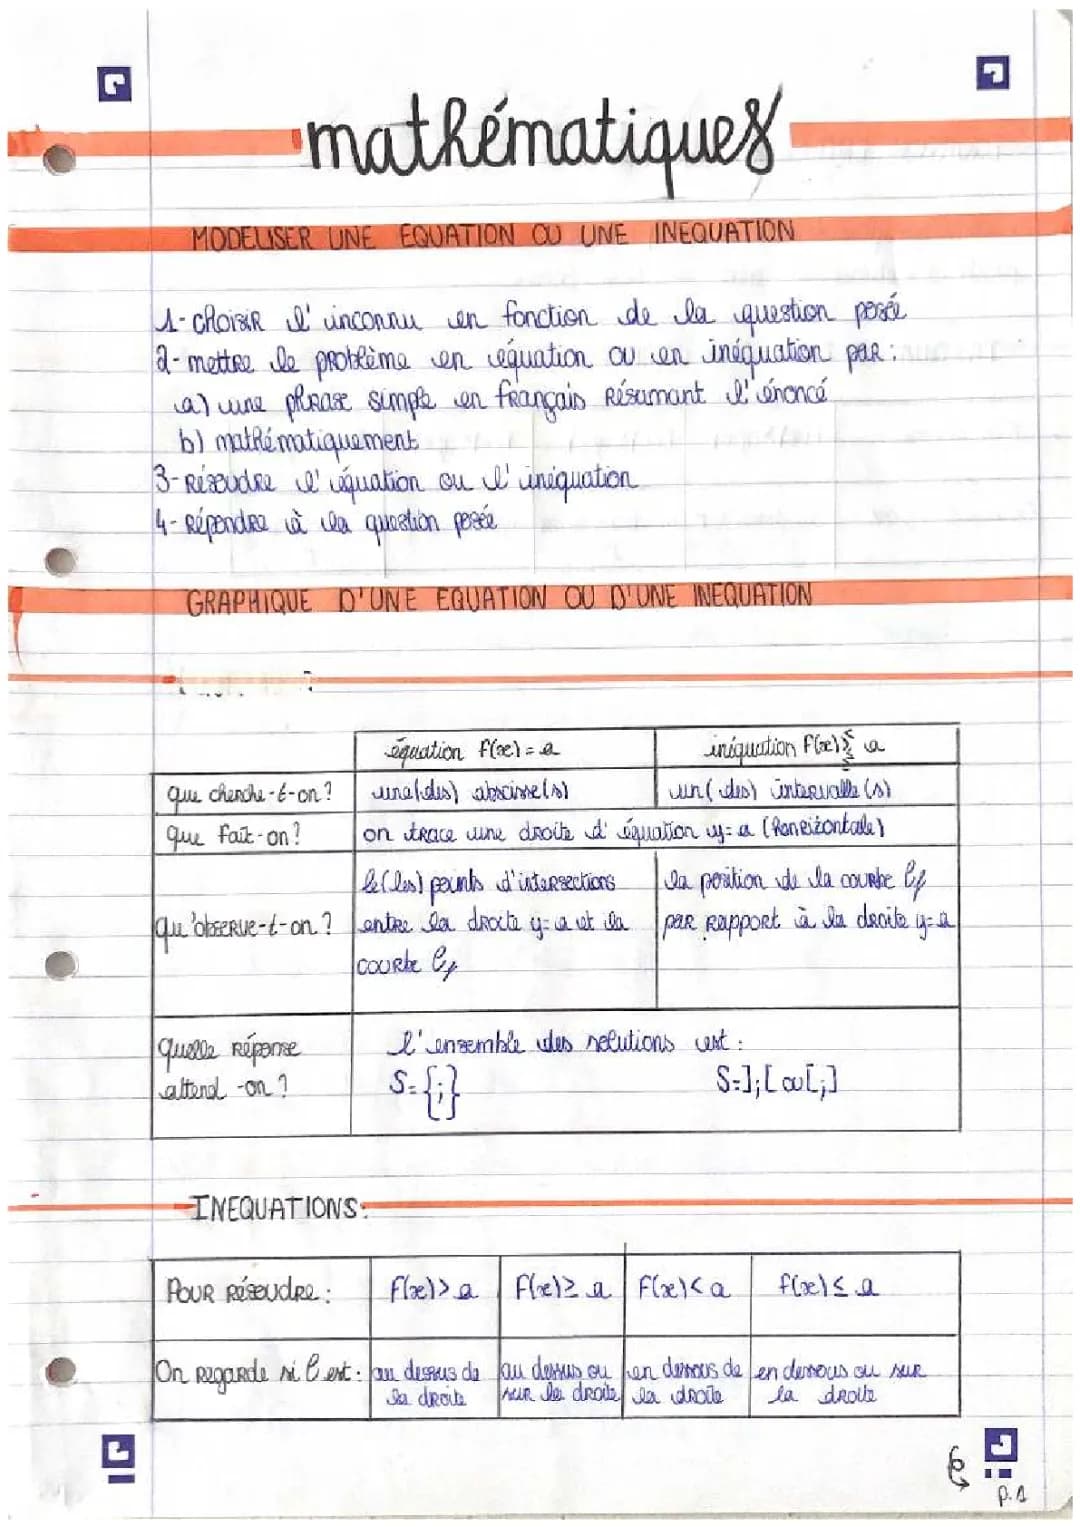 mathématiques
MODELISER UNE EQUATION OU UNE INEQUATION
1- choisir l'inconnu en fonction de la question posée
2- mettre le problème en équation ou en inéquation par :
a) une phrase simple en français résumant l'énoncé
b) mathématiquement
3- résoudre l'équation ou l'inéquation
4- répondre à la question posée
GRAPHIQUE D'UNE EQUATION OU D'UNE INEQUATION
équation f(x) = a
inéquation f(x) a
que cherche-t-on ?
une(des) abscisse(s)
un(des) intervalle(s)
que fait-on ?
on trace une droite d'équation y= a (horizontale)
qu'observe-t-on ?
le(les) points d'intersections
entre la droite y= a et la
courbe Cf
la position de la courbe Cf
par rapport à la droite y= a
quelle réponse
attend-on ?
l'ensemble des solutions est :
S={;}
S=];[ ou [;]
INEQUATIONS:
Pour résoudre :
f(x) > a
f(x) ≥ a
f(x) < a
f(x) ≤ a
On regarde si C est :
au dessus de
la droite
au dessus ou
sur la droite
en dessous de
la droite
en dessous ou sur
la droite
p.1